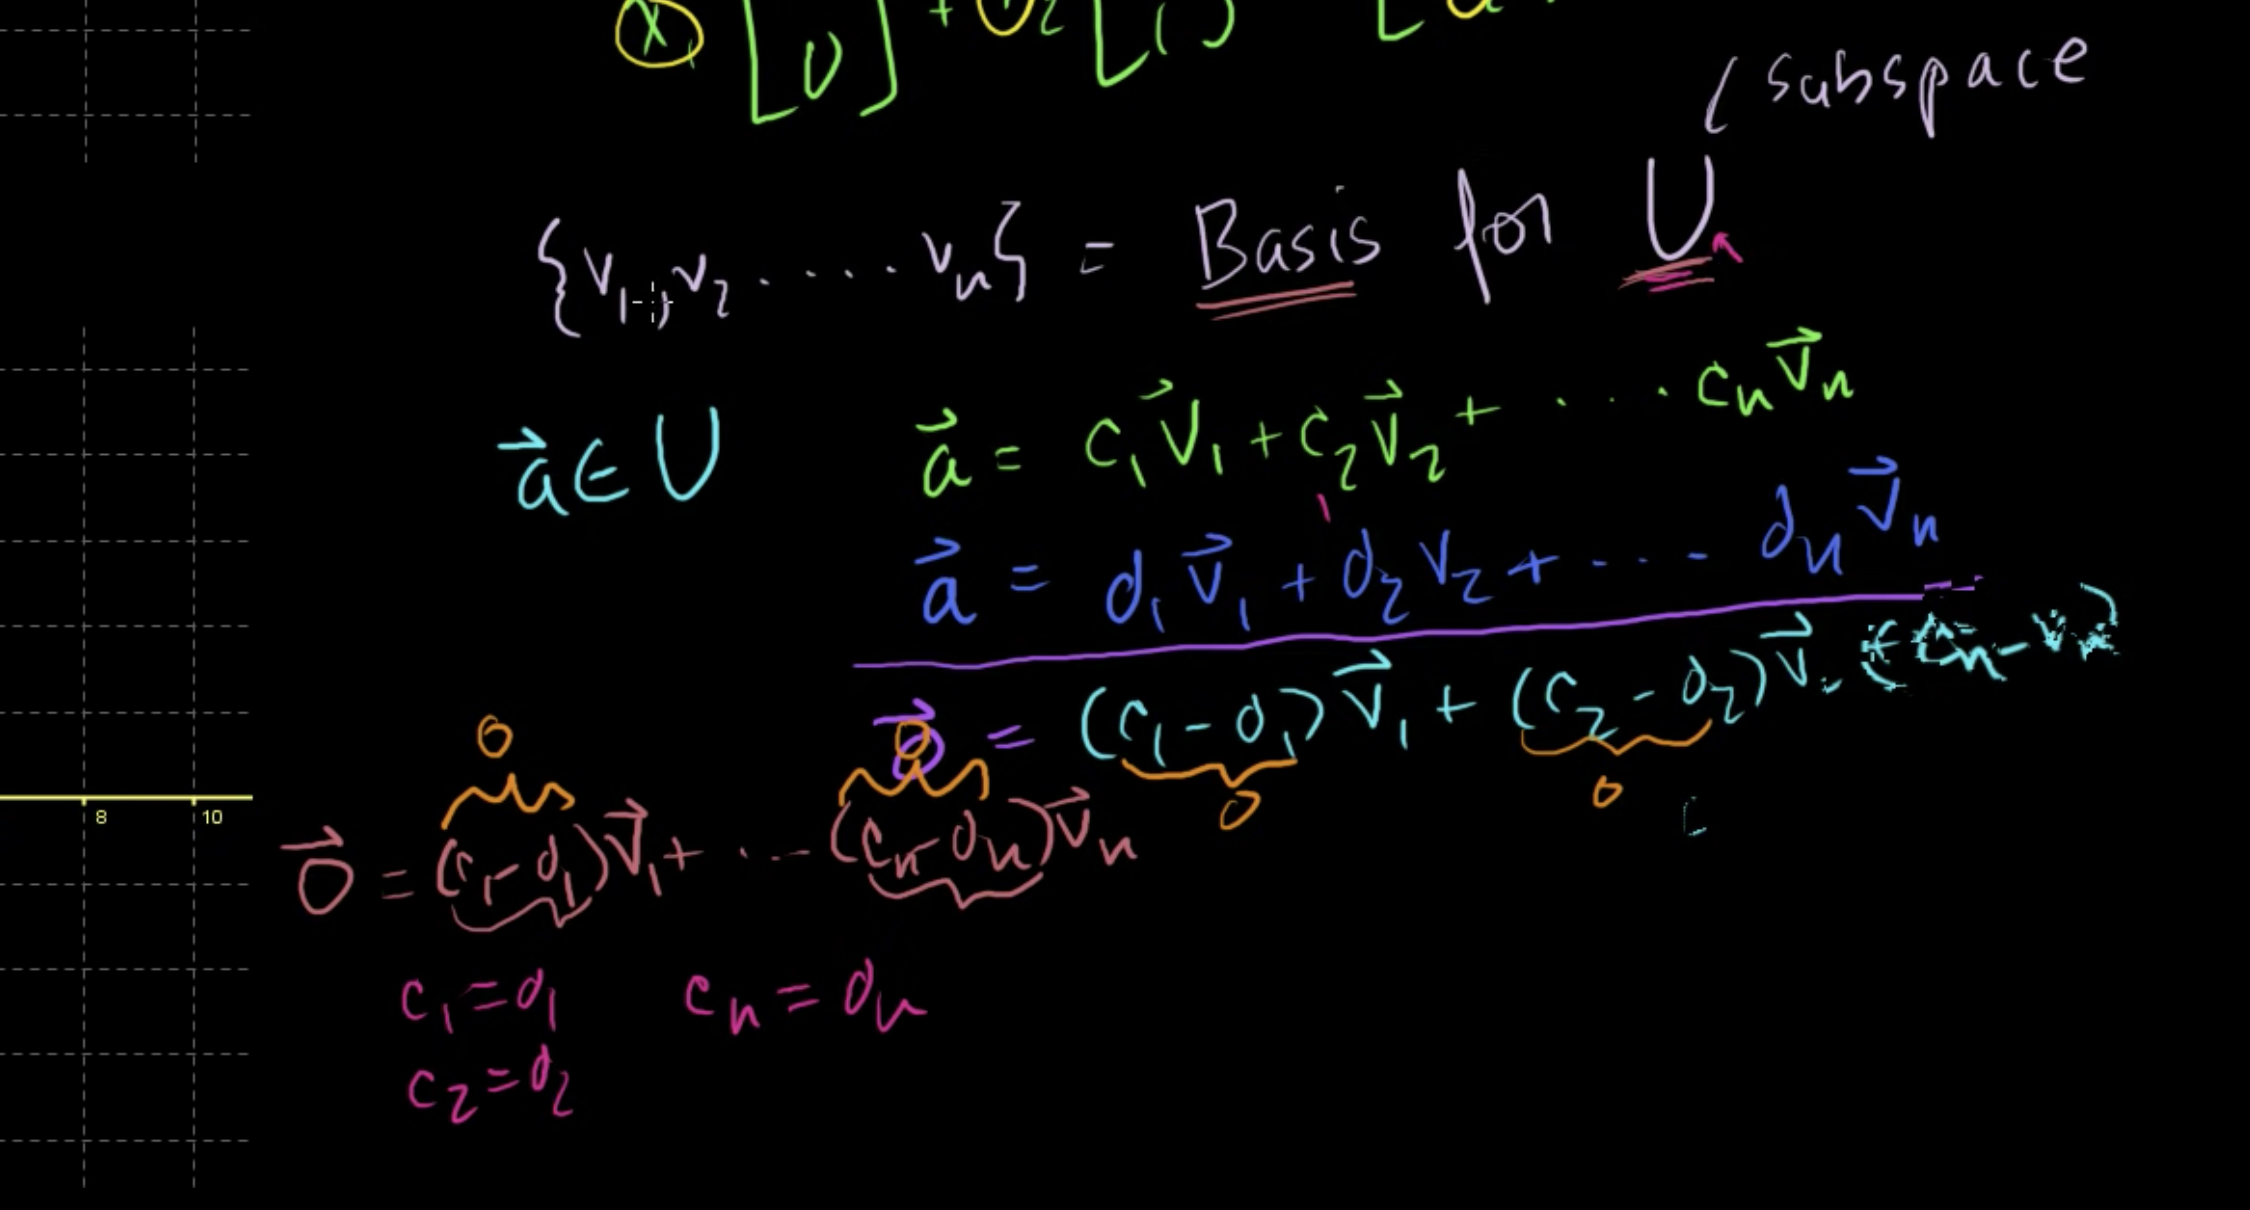 (subspace
{v₁, v₂ ..... vₙ} = Basis for U
a⃗ ∈ U
a⃗ = c₁v⃗₁ + c₂v⃗₂ + .... cₙv⃗ₙ
a⃗ = d₁v⃗₁ + d₂v₂ + .... dₙv⃗ₙ
0⃗ = (c₁ - d₁)v⃗₁ + (c₂ - d₂)v⃗
0 0
0 0
8 10
0⃗ = (c₁ - d₁)v⃗₁ + .... (cₙ - dₙ)v⃗ₙ
c₁ = d₁ cₙ = dₙ
c₂ = d₂